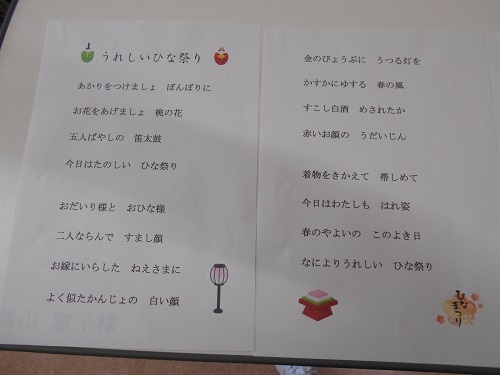 うれしいひな祭り
あかりをつけましょ　ぼんぼりに
お花をあげましょ　桃の花
五人ばやしの　笛太鼓
今日はたのしい　ひな祭り
おだいり様と　おひな様
二人ならんで　すまし顔
お嫁にいらした　ねえさまに
よく似たかんじょの　白い顔
西山　敏子様
金のびょうぶに　うつる灯を
かすかにゆする　春の風
すこし白酒　めされたか
赤いお顔の　うだいじん
着物をきかえて　帯しめて
今日はわたしも　はれ姿
春のやよいの　このよき日
なによりうれしい　ひな祭り
ひなまつり